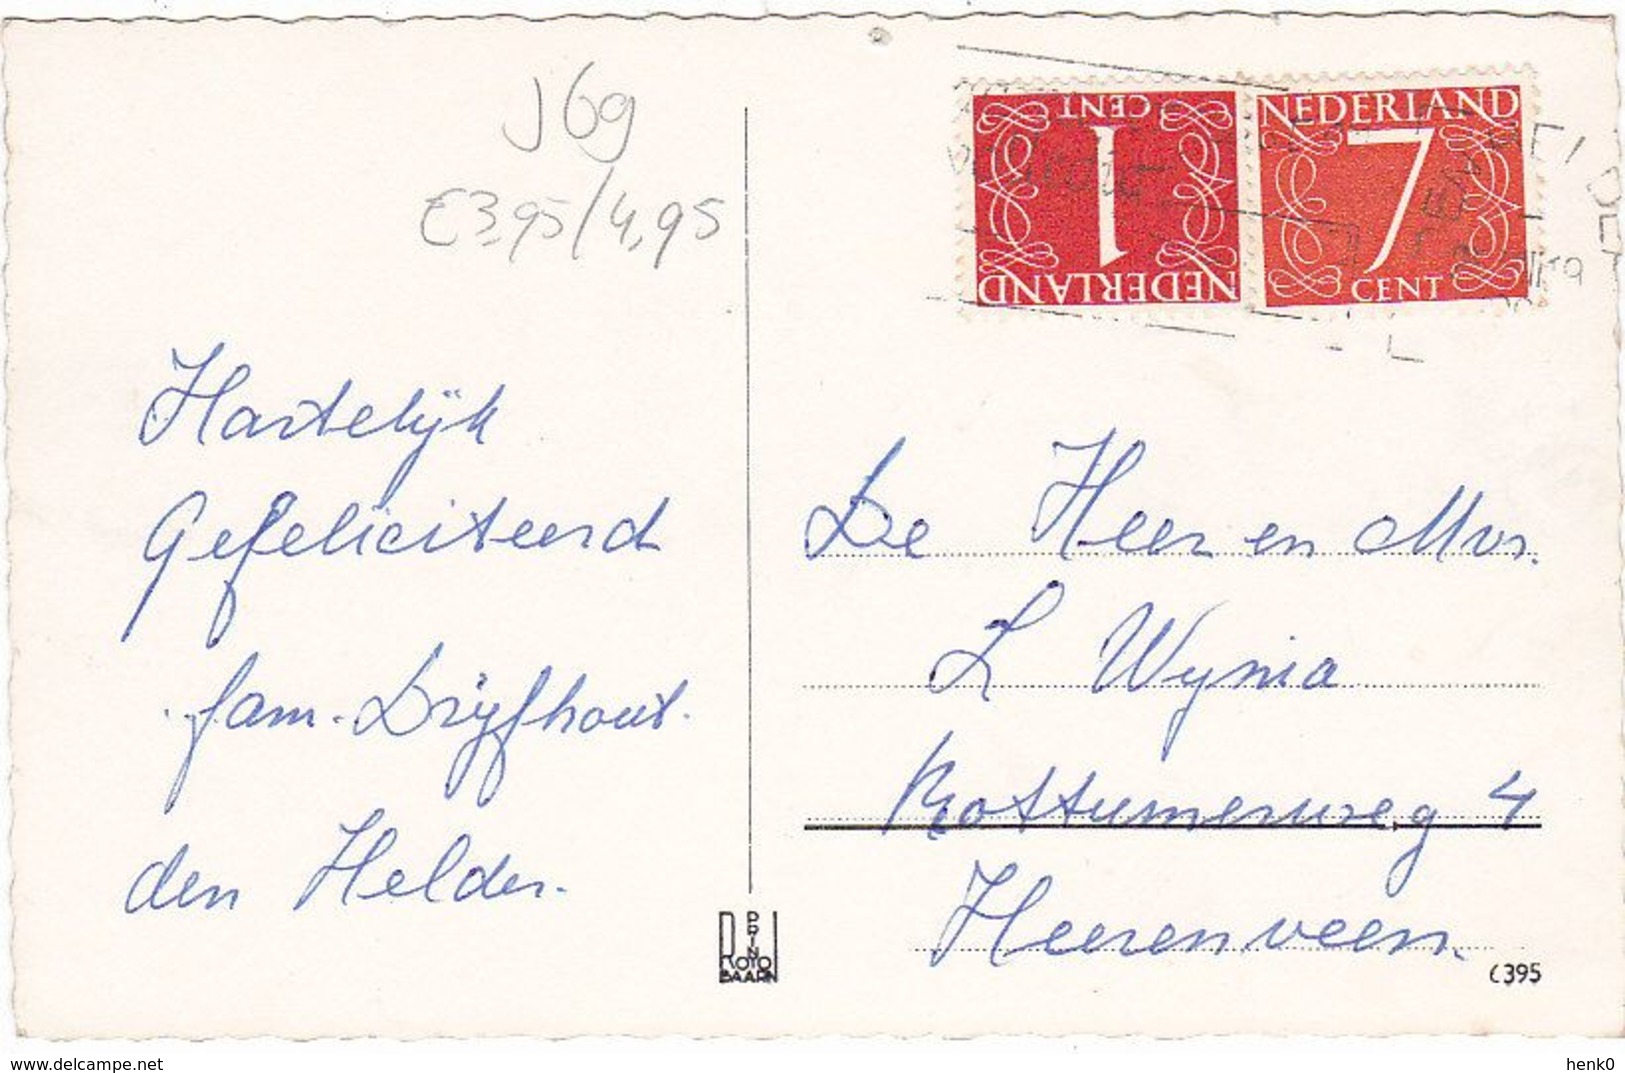 J69
€3,95/4,95
Hartelijk
Gefeliciteerd
fam. Drijfhout.
den Helder.
1
CENT
NEDERLAND
NEDERLAND
7
CENT
De Heer en Mvr.
L Wynia
Rottumerweg 4
Heerenveen.
ROTO
BAARN
C395
www.delcampe.net
henk0